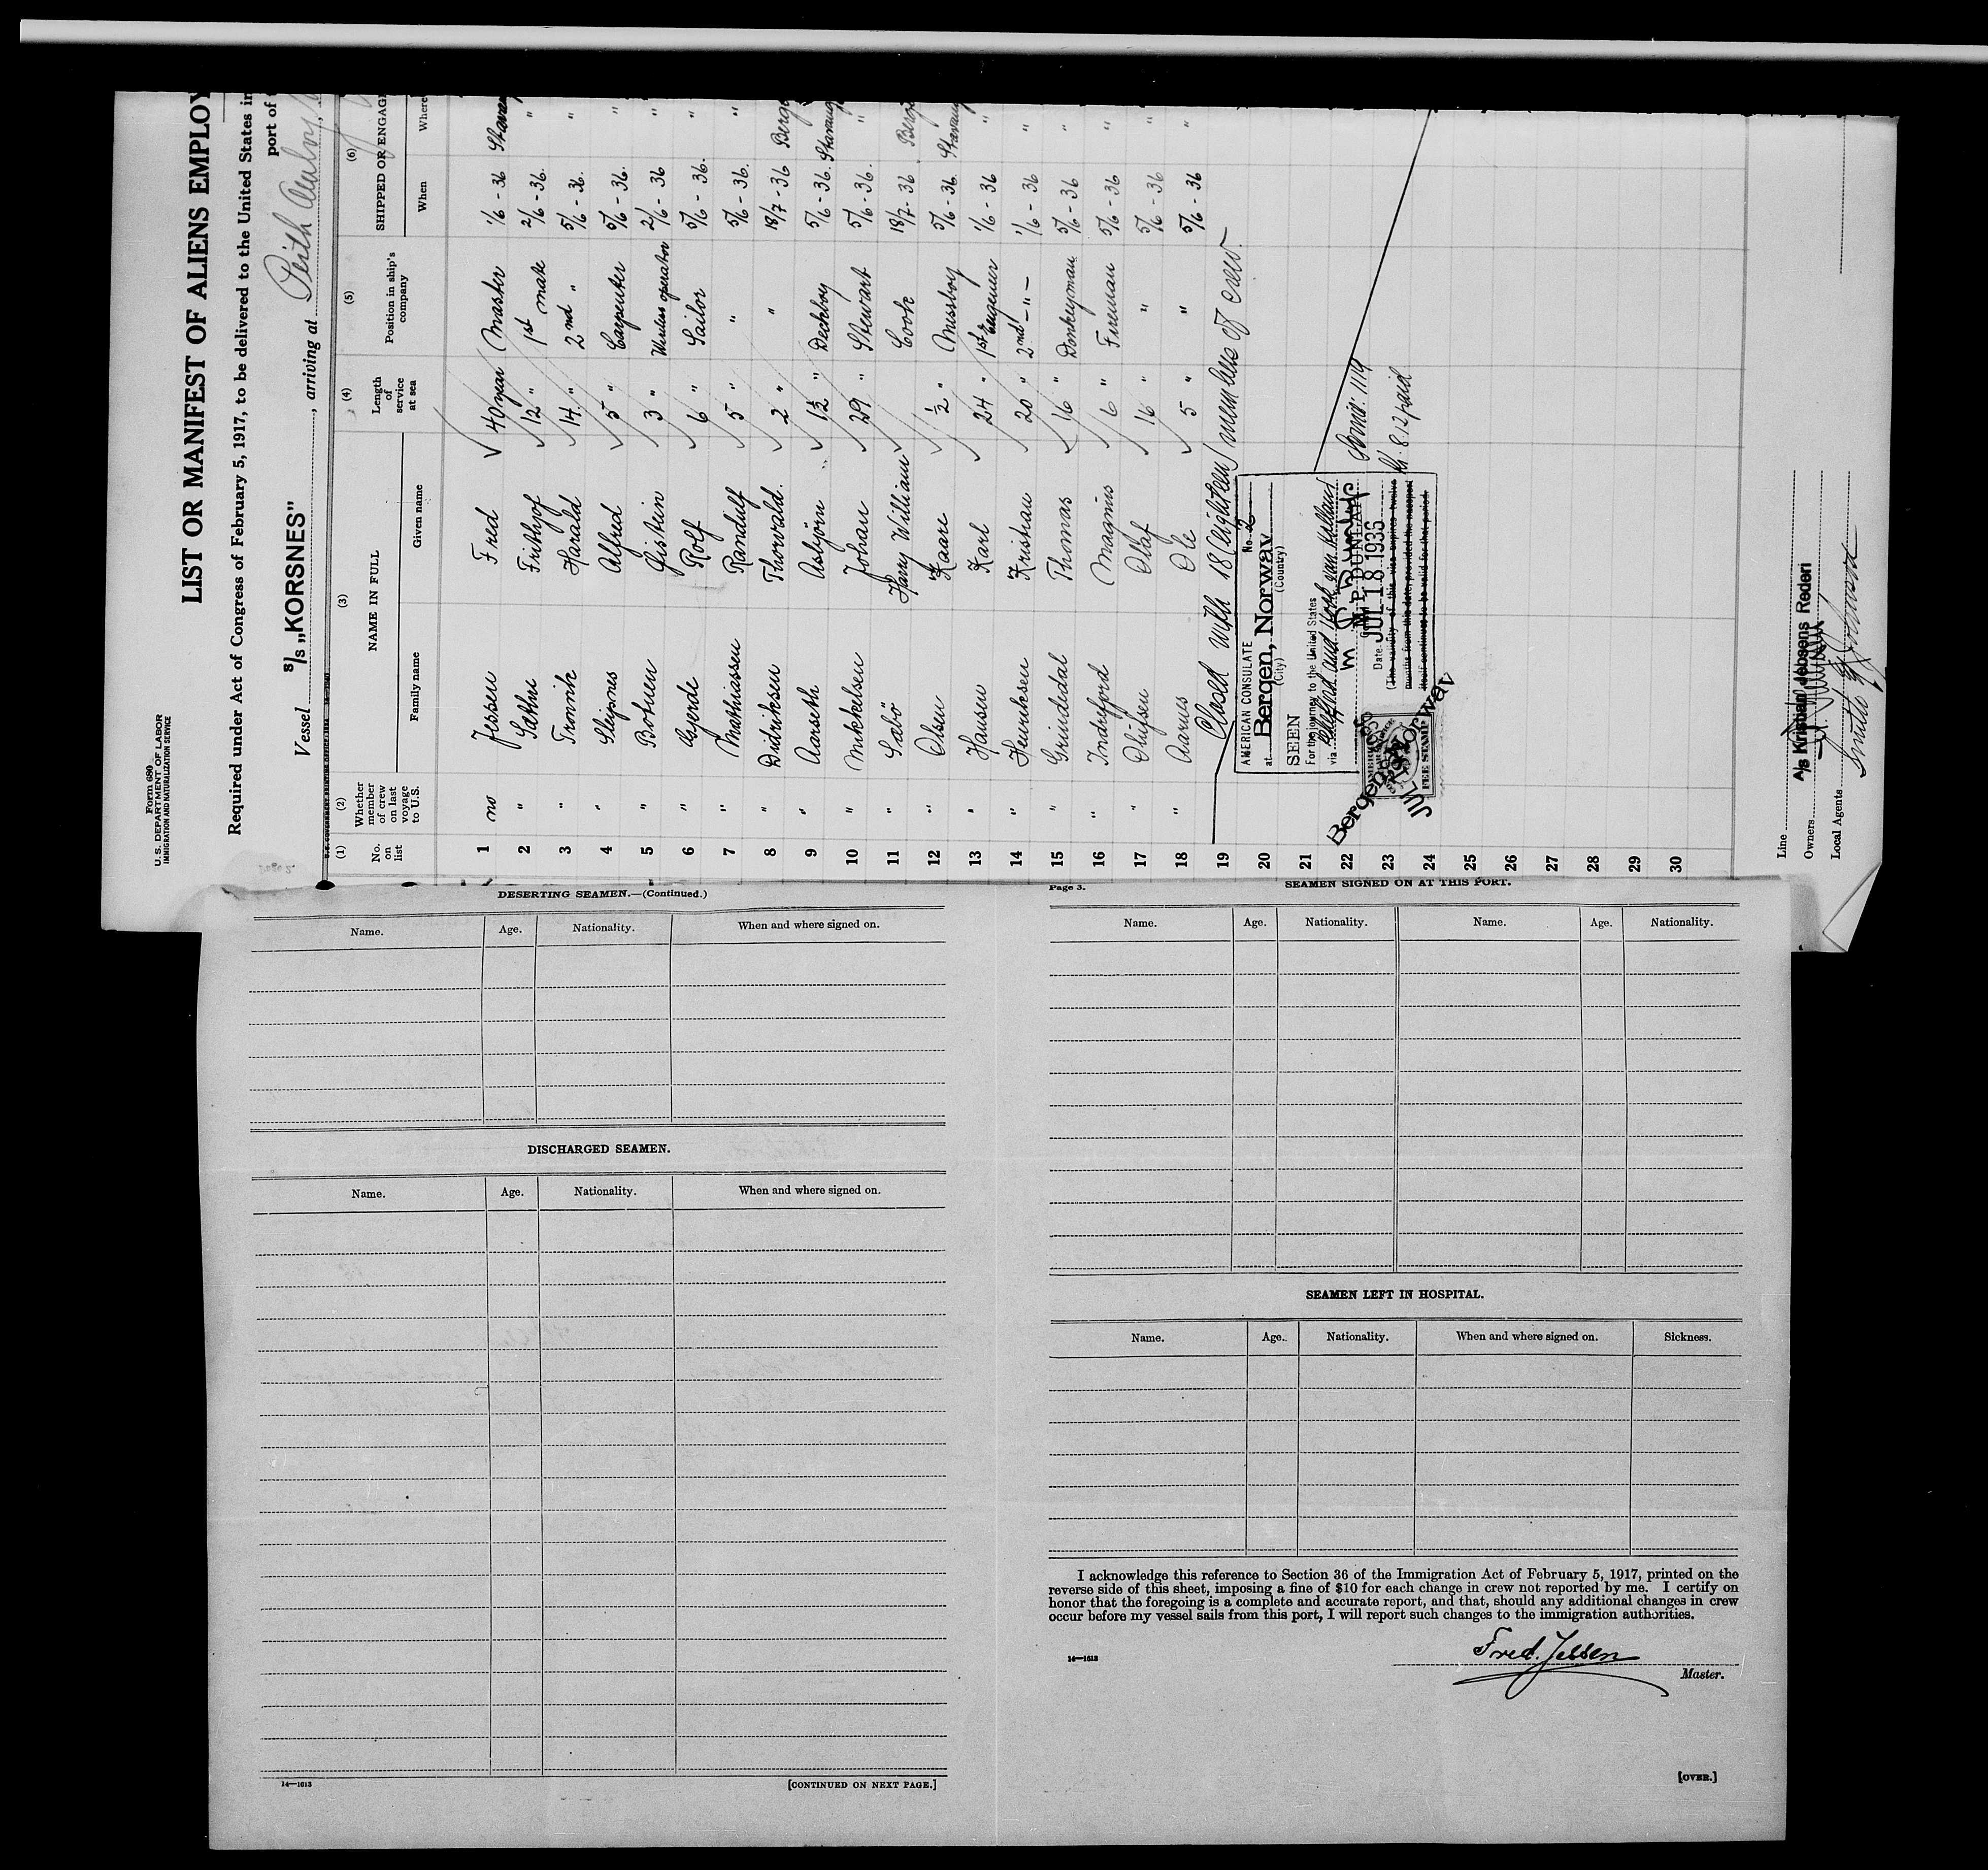 Form 680
U. S. DEPARTMENT OF LABOR
IMMIGRATION AND NATURALIZATION SERVICE
LIST OR MANIFEST OF ALIENS EMPLOY
Required under Act of Congress of February 5, 1917, to be delivered to the United States in
port of
Vessel S/S „KORSNES", arriving at Perth Amboy,
(1) (2) (3) (4) (5) (6)
No. on list
Whether member of crew on last voyage to U.S.
NAME IN FULL
Family name Given name
Length of service at sea
Position in ship's company
SHIPPED OR ENGAG
When Where
1 no Jessen Fred 40 year Master 1/6 - 36 Stavang
2 " Sathre Frithjof 12 " 1st mate 2/6 - 36. "
3 " Tronik Harald 14 " 2nd " 5/6 - 36. "
4 " Sleipnes Alfred 5 " Carpenter 5/6 - 36. "
5 " Botnen Gistein 3 " Wireless operator 2/6 - 36 "
6 " Gjerde Rolf 6 " Sailor 5/6 - 36. "
7 " Mathiassen Randulf 5 " " 5/6 - 36. "
8 " Didriksen Thorvald. 2 " " 18/7 - 36 Berge
9 " Aarseth Asbjørn 1½ " Deckboy 5/6 - 36. Stavang
10 " Mikkelsen Johan 29 " Stewart 5/6 - 36. "
11 " Sæbö Harry William Cook 18/7 - 36 Berge
12 " Olsen Kaare ½ " Messboy 5/6 - 36. Stavang
13 " Hansen Karl 24 " 1st engeneer 1/6 - 36 "
14 " Henriksen Kristian 20 " 2nd - " - 1/6 - 36 "
15 " Grindedal Thomas 16 " Donkeyman 5/6 - 36 "
16 " Indrefjord Magnus 6 " Fireman 5/6 - 36 "
17 " Olufsen Olaf 16 " " 5/6 - 36 "
18 " Aarnes Ole 5 " " 5/6 - 36
19 Closed with 18 (eighteen) members of crew.
20
21
22
23
24
25
26
27
28
29
30
AMERICAN CONSULATE No. 2
at Bergen, Norway
(City) (Country)
SEEN
For the journey to the United States
via
M. P. DUNLAP
Date JUL 18 1936
(The validity of this visa expires twelve
months from this date, provided the passport
itself continues to be valid for that period.
Servid: 1119
Kr. 8.12 paid
AMERICAN
FEE STAMP
Bergen, Norway
JUL 18 1936
Line
Owners A/S Kristian Jebsens Rederi
Local Agents Smith & Johnson
Page 2.
DESERTING SEAMEN.—(Continued.)
Name. Age. Nationality. When and where signed on.
DISCHARGED SEAMEN.
Name. Age. Nationality. When and where signed on.
14—1613
[CONTINUED ON NEXT PAGE.]
Page 3.
SEAMEN SIGNED ON AT THIS PORT.
Name. Age. Nationality. Name. Age. Nationality.
SEAMEN LEFT IN HOSPITAL.
Name. Age. Nationality. When and where signed on. Sickness.
I acknowledge this reference to Section 36 of the Immigration Act of February 5, 1917, printed on the
reverse side of this sheet, imposing a fine of $10 for each change in crew not reported by me. I certify on
honor that the foregoing is a complete and accurate report, and that, should any additional changes in crew
occur before my vessel sails from this port, I will report such changes to the immigration authorities.
14—1613
Fred. Jessen
Master.
[OVER.]